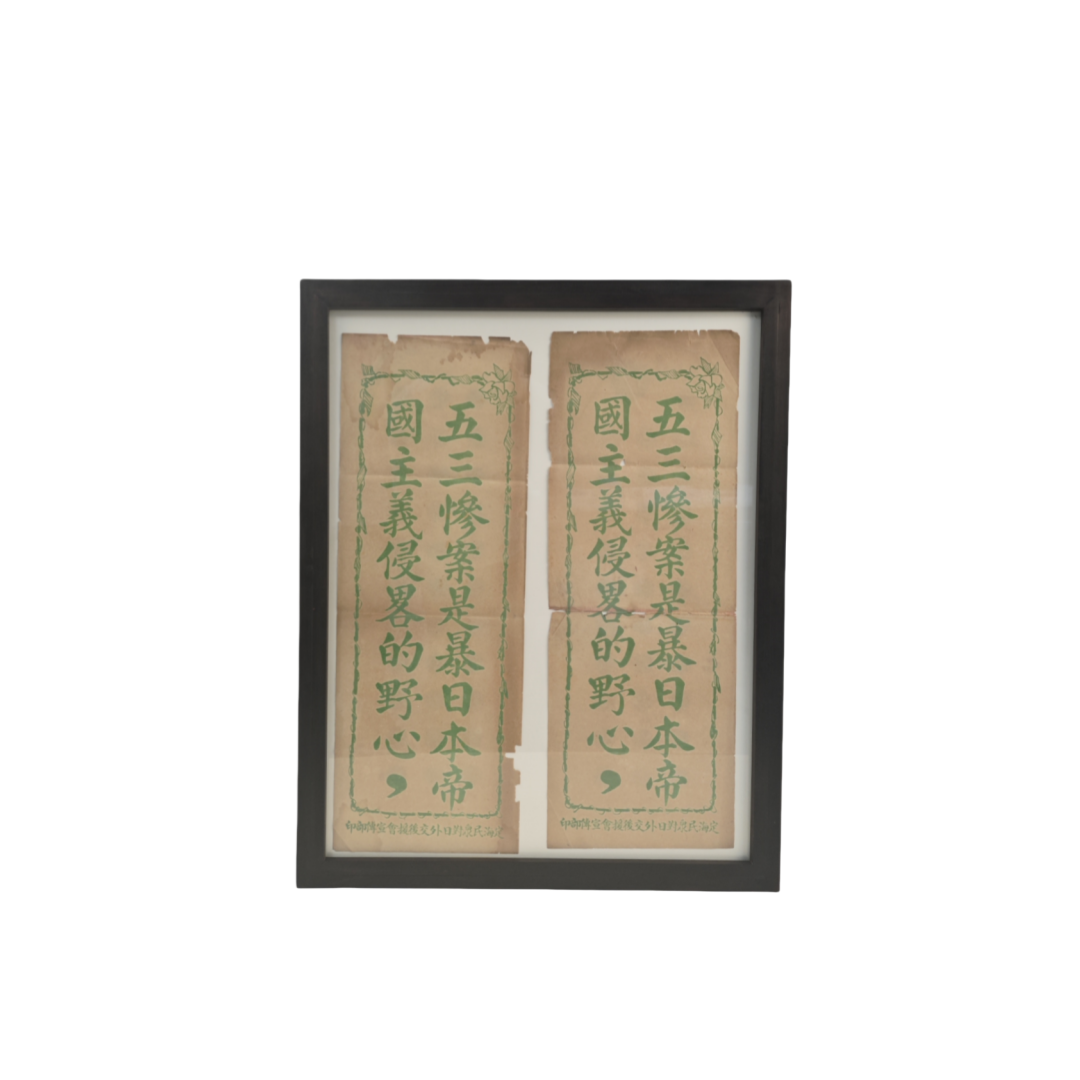 五三慘案是暴日本帝
國主義侵畧的野心，
定海民衆對日外交後援會宣傳部印
五三慘案是暴日本帝
國主義侵畧的野心，
定海民衆對日外交後援會宣傳部印